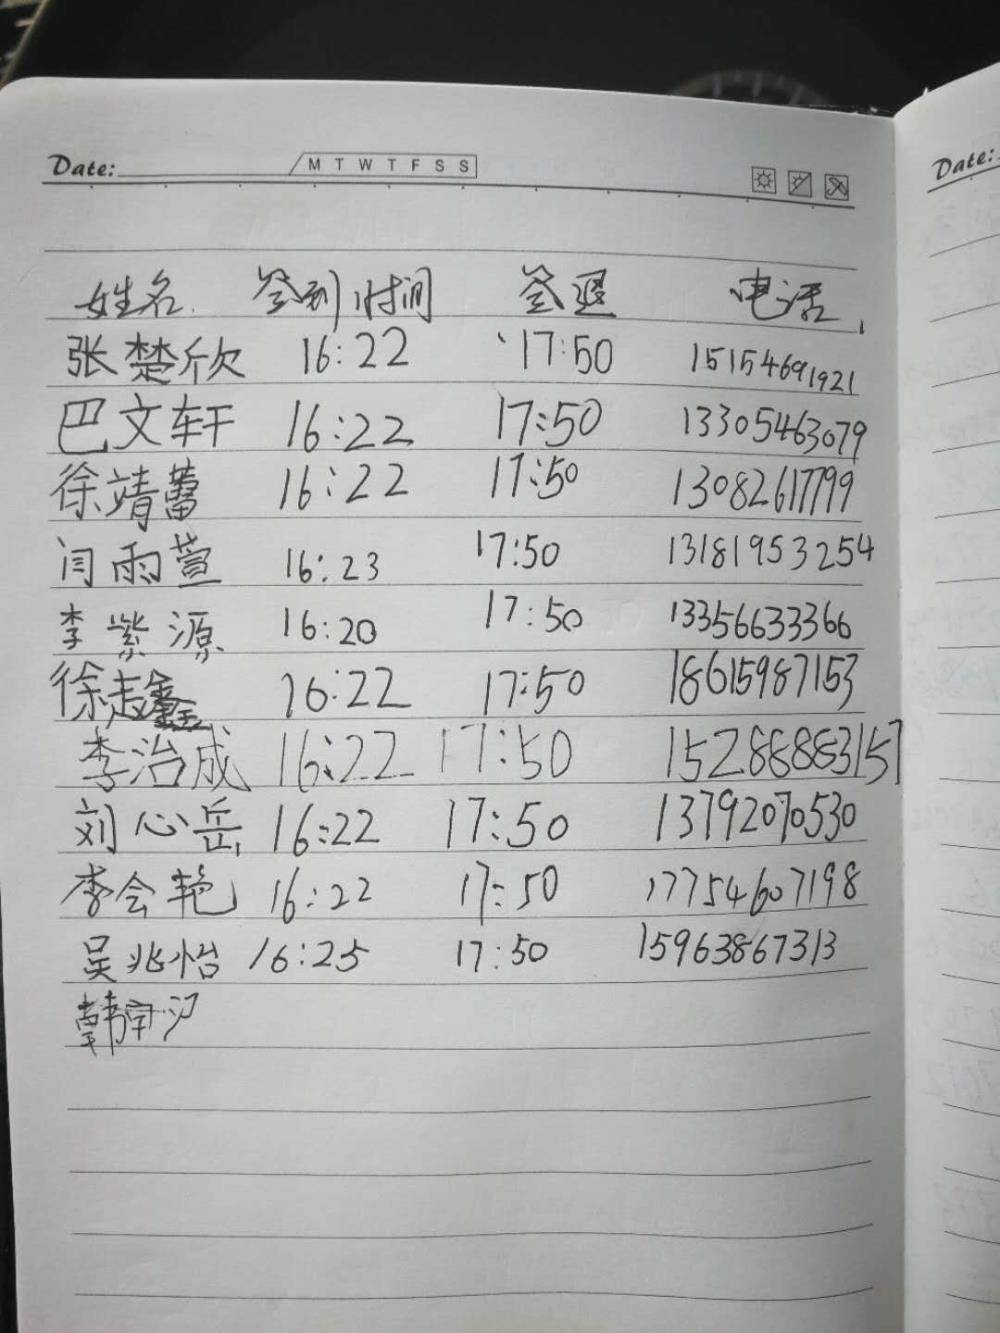 Date: M T W T F S S
Date:
姓名 签到时间 签退 电话
张楚欣 16:22 17:50 15154691921
巴文轩 16:22 17:50 13305463079
徐靖蕾 16:22 17:50 13082617799
闫雨萱 16:23 17:50 13181953254
李紫源 16:20 17:50 13356633366
徐志鑫 16:22 17:50 18615987153
李治成 16:22 17:50 15288883157
刘心岳 16:22 17:50 13792070530
李会艳 16:22 17:50 17754607198
吴兆怡 16:25 17:50 15963867313